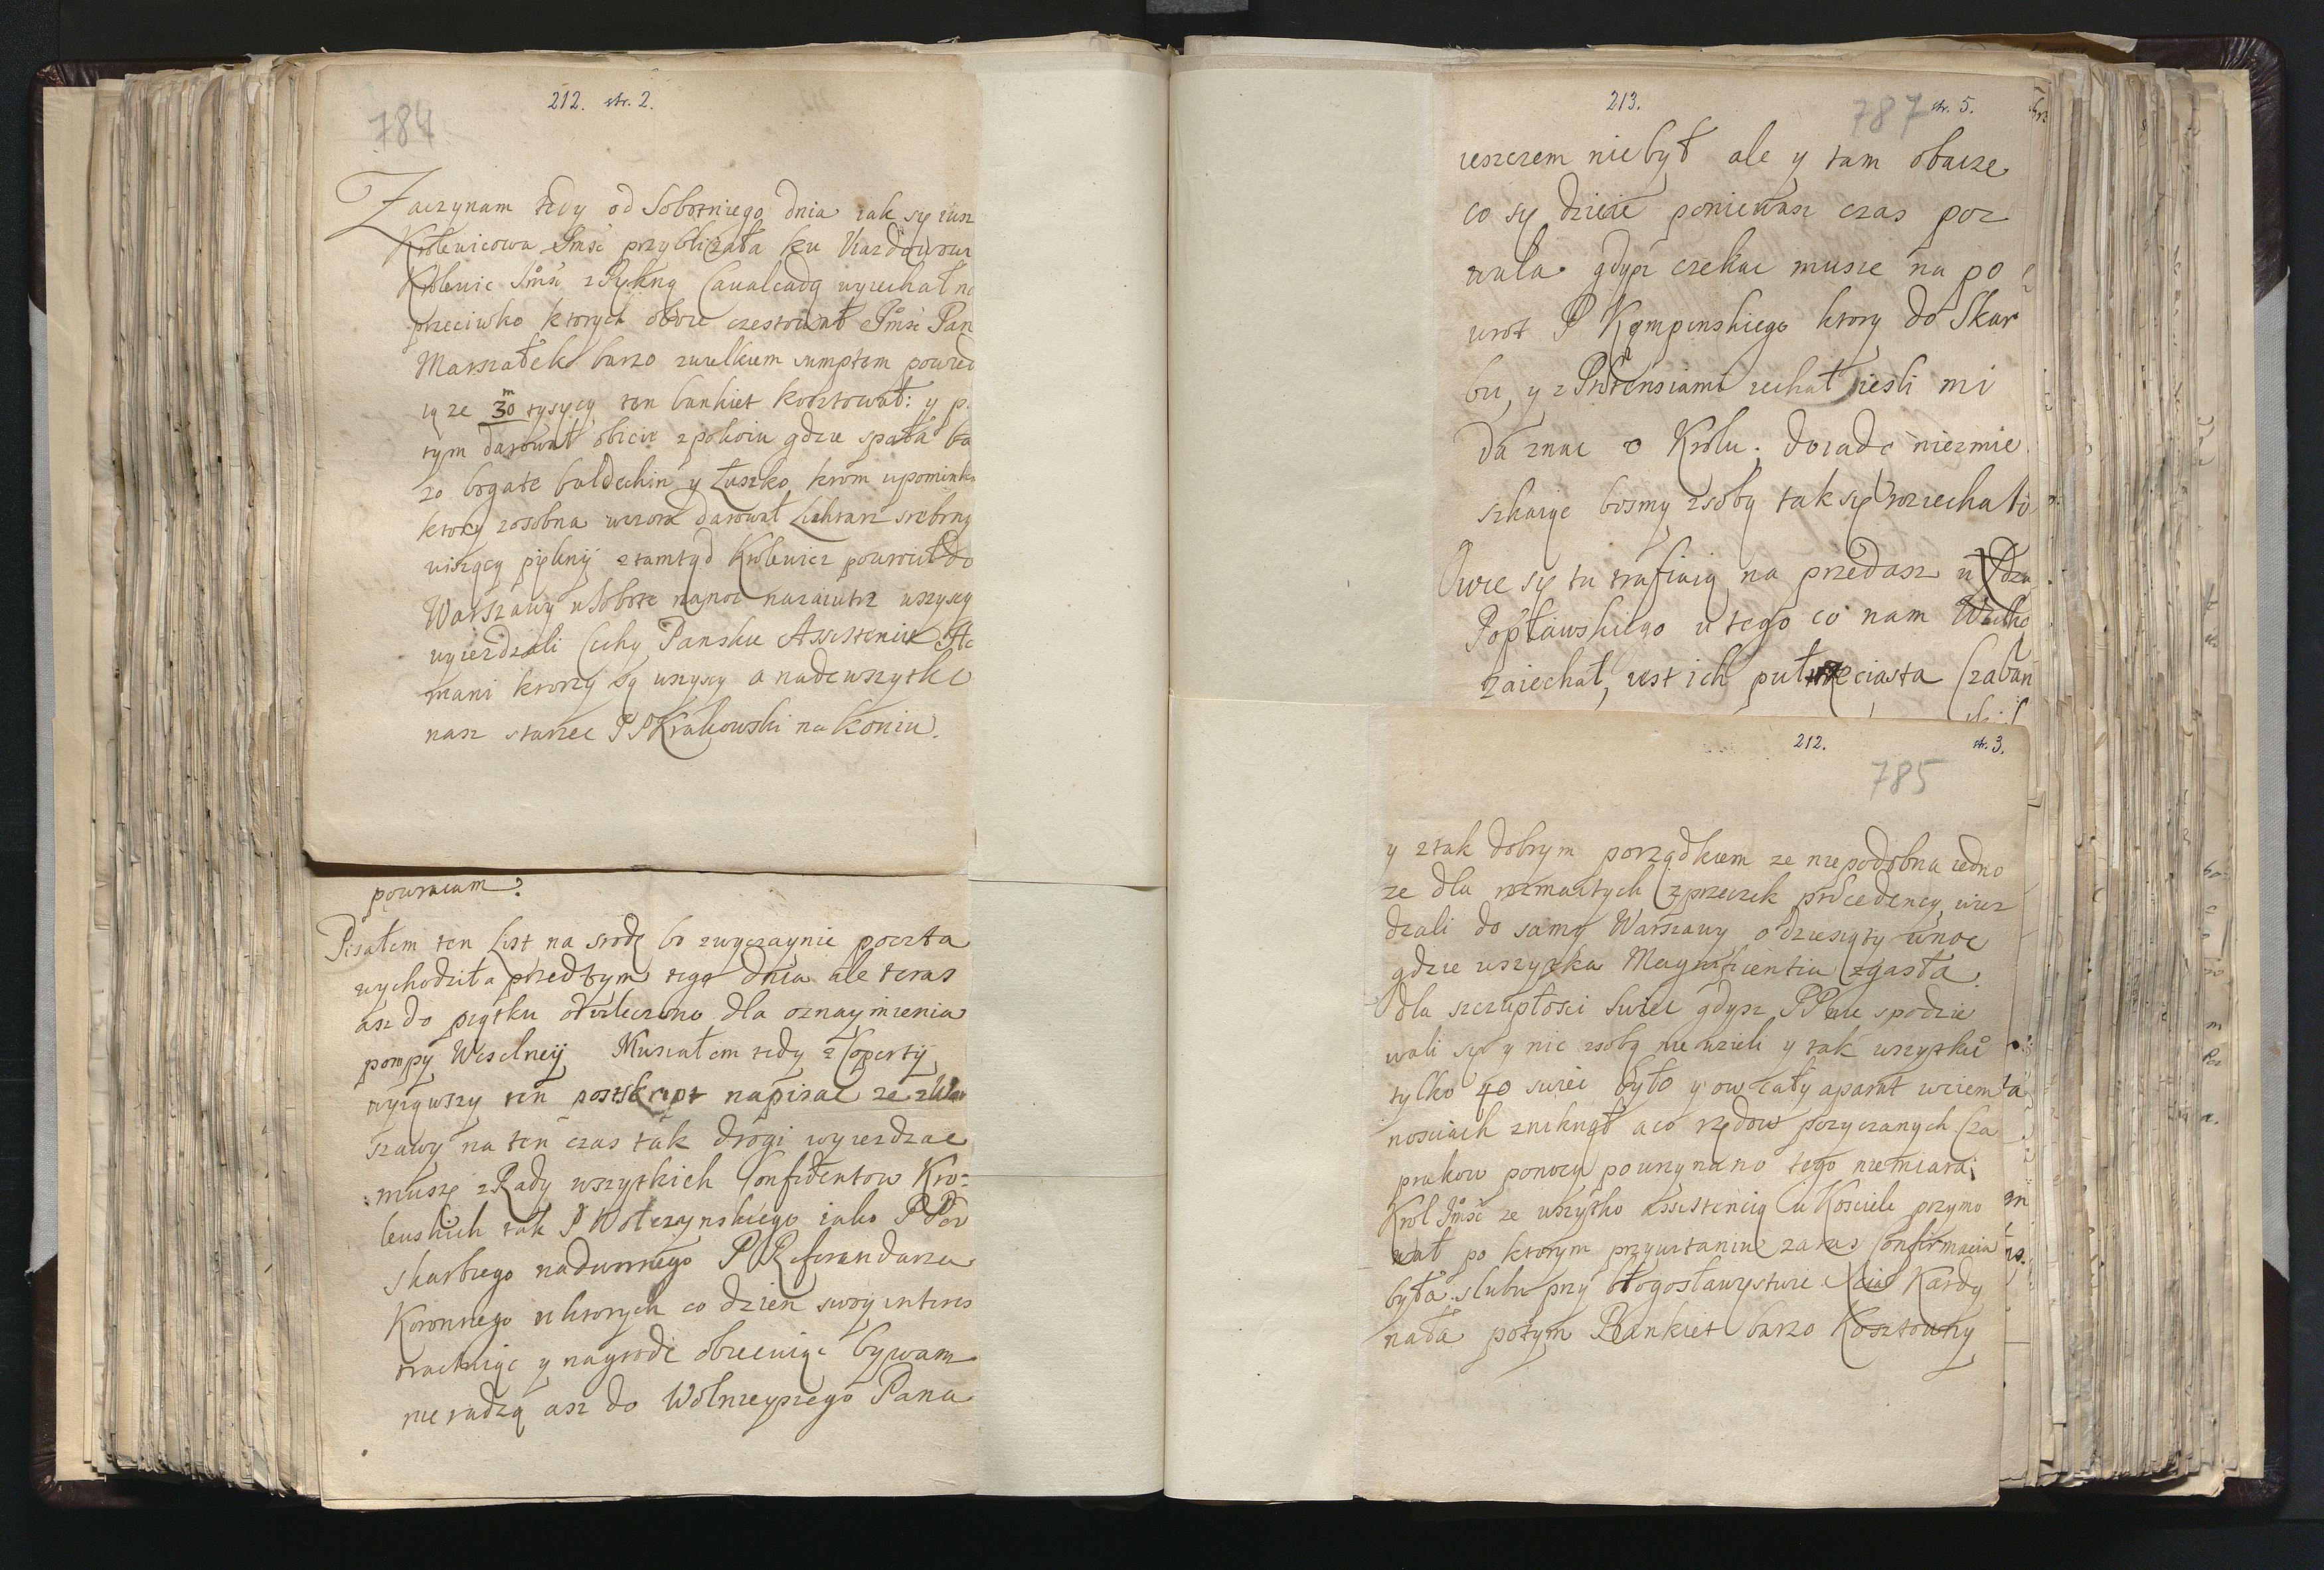 784
212. str. 2.
Zaczynam tedy od Sobotniego dnia iak się iusz
Krolewicowa Jmść przybliżała ku
Krolewic Jmść z Piękną Caualcadą wyiechał na
przeciwko ktorych oboie czestował Jmść Pan
Marszałek barzo zwielkiem sumptem powied
ią ze 30 m tysięcy ten bankiet kosztował: y p.
tym darował obicie z pokoiu gdzie spała ba
zo bogate baldechin y Łuszko krom upominku
ktory zosobna wczora darował Lichtarz srebrny
wiszący piękny ztamtąd Krolewicz powrocił do
Warszawy w Sobote nanoc nazaiutrz wszyscy
wyiezdzali Cechy Panskie Assistencie He
mani ktorzy są wszyscy a nadewszytko
nasz starzec PP Krakowski na koniu.
powracam?
Pisałem ten List na srodę bo zwyczaynie poczta
wychodziła przedtym tego dnia ale teraz
asz do piątku odwleczono dla oznaymienia
pompy Weselney Musiałem tedy z Coperty
wyiąwszy ten postskript napisac ze zWar
szawy na ten czas tak drogi wyiezdzac
muszę z Rady wszytkich Confidentow Kro=
lewskich tak P Wolczynskiego iako P Pod
skarbiego nadwornego P Referendarza
Koronnego u ktorych co dzien swoy interes
tractuiąc y nagrode obiecuiąc bywam
nie radzą asz do Wolnieyszego Pana
213.
787 str. 5.
ieszczem niebył ale y tam obacze
co się dzieie poniewasz czas poz
wala gdysz czekac musze na po
wrot P Kępinskiego ktory do Skar
bu, y z Pretensiami iechał iesli mi
da znac o Krolu. doiade niezmie
szkaiąc bosmy zsobą tak się roziechali
Owce się tu trafiaią na przedasz u
Popławskiego u tego co nam
Zaiechał, iest ich pułtrzeciasta Czaban
212. str. 3.
785
y ztak dobrym porządkiem ze niepodobna iedno
ze dla rozmaitych zprzeczek precedency wiez
dzali do samy Warszawy o dziesiąty wnoc
gdzie wszyszka Magnificentia zgasła
dla szczupłosci swiec gdysz PP nie spodzie
wali się y nic zsobą nie wzieli y tak wszytkie
tylko 40 swiec było y ow cały aparat wciem
nosciach zniknął aco rzędow pozyczanych Cza
prakow ponocy pourzynano tego niemiara
Krol Jmść ze wszytko Assistencią w Kosciele przymo
wał po ktorym przywitaniu zaraz Confirmacia
była slubu przy błogosławęstwie Xcia Kardy
nała potym Bankiet barzo Kosztowny